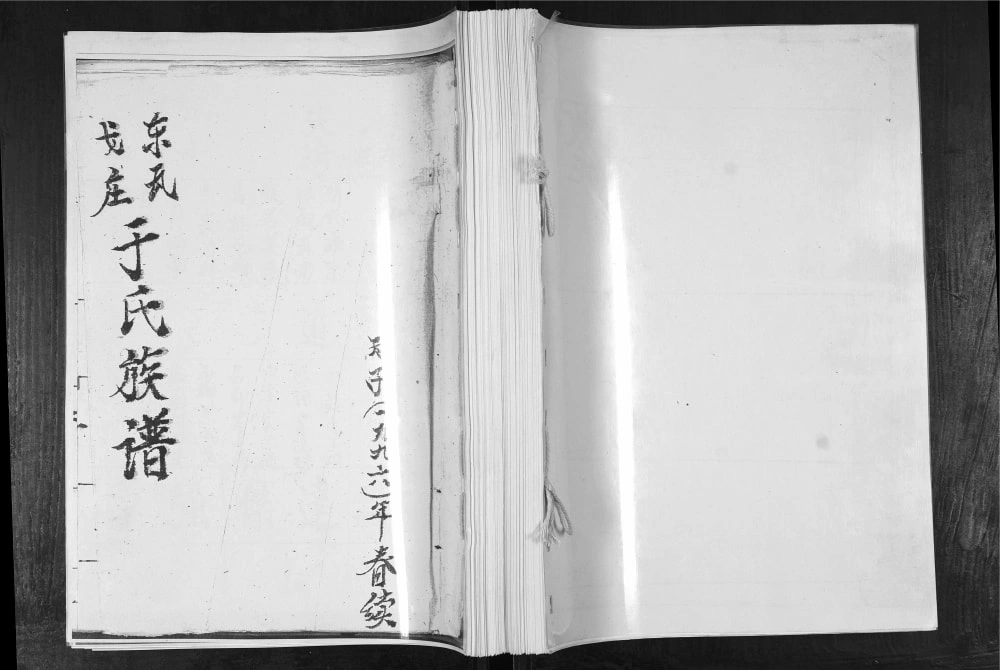 丙子(一九九六)年春续
东瓦
戈庄
于氏族谱